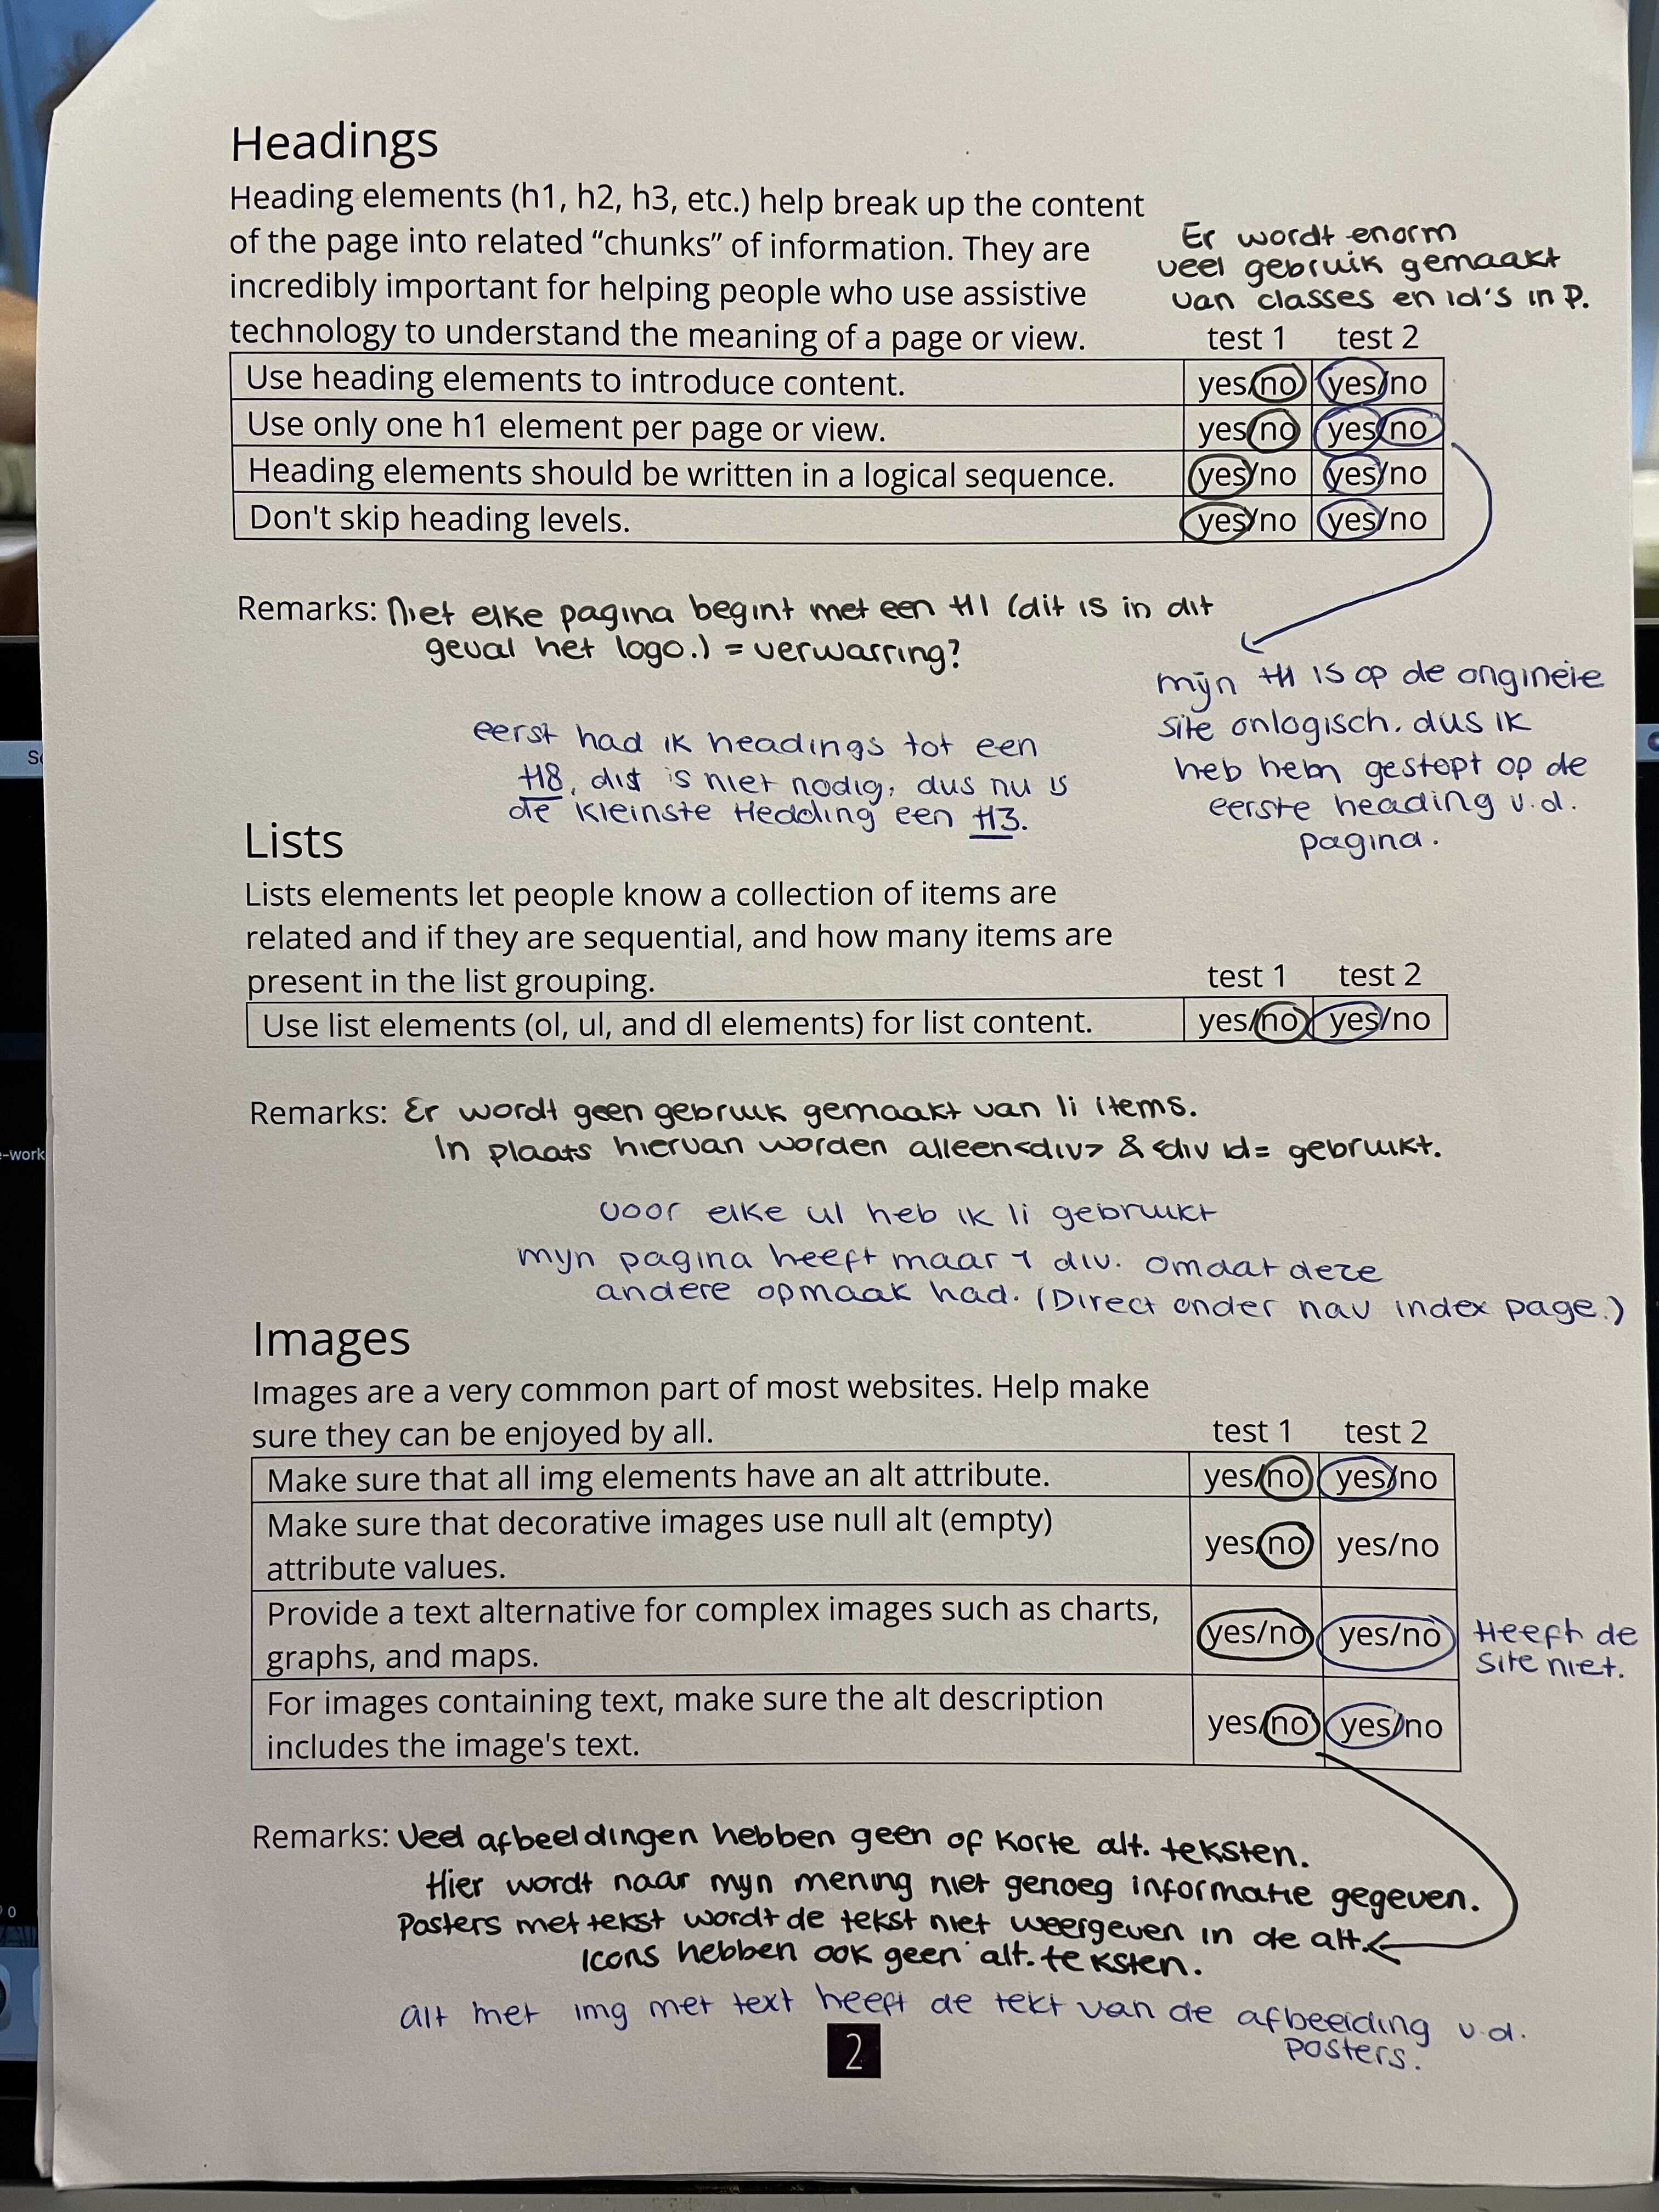 Headings
Heading elements (h1, h2, h3, etc.) help break up the content
of the page into related “chunks” of information. They are
incredibly important for helping people who use assistive
technology to understand the meaning of a page or view.
Er wordt enorm
veel gebruik gemaakt
van classes en id's in P.
test 1 test 2
Use heading elements to introduce content. yes/no yes/no
Use only one h1 element per page or view. yes/no yes/no
Heading elements should be written in a logical sequence. yes/no yes/no
Don't skip heading levels. yes/no yes/no
Remarks: Niet elke pagina begint met een H1 (dit is in dit
geval het logo.) = verwarring?
mijn H1 is op de originele
site onlogisch. dus ik
heb hem gestopt op de
eerste heading v.d.
pagina.
eerst had ik headings tot een
H8, dit is niet nodig, dus nu is
de kleinste Hedding een H3.
Lists
Lists elements let people know a collection of items are
related and if they are sequential, and how many items are
present in the list grouping.
test 1 test 2
Use list elements (ol, ul, and dl elements) for list content. yes/no yes/no
Remarks: Er wordt geen gebruik gemaakt van li items.
In plaats hiervan worden alleen <div> & <div id= gebruikt.
voor elke ul heb ik li gebruikt
mijn pagina heeft maar 1 div. omdat deze
andere opmaak had. (Direct onder nav index page.)
Images
Images are a very common part of most websites. Help make
sure they can be enjoyed by all.
test 1 test 2
Make sure that all img elements have an alt attribute. yes/no yes/no
Make sure that decorative images use null alt (empty)
attribute values. yes/no yes/no
Provide a text alternative for complex images such as charts,
graphs, and maps. yes/no yes/no
Heeft de
site niet.
For images containing text, make sure the alt description
includes the image's text. yes/no yes/no
Remarks: Veel afbeeldingen hebben geen of korte alt. teksten.
Hier wordt naar mijn mening niet genoeg informatie gegeven.
Posters met tekst wordt de tekst niet weergeven in de alt.
Icons hebben ook geen alt. teksten.
alt met img met text heeft de tekt van de afbeelding v.d.
posters.
2